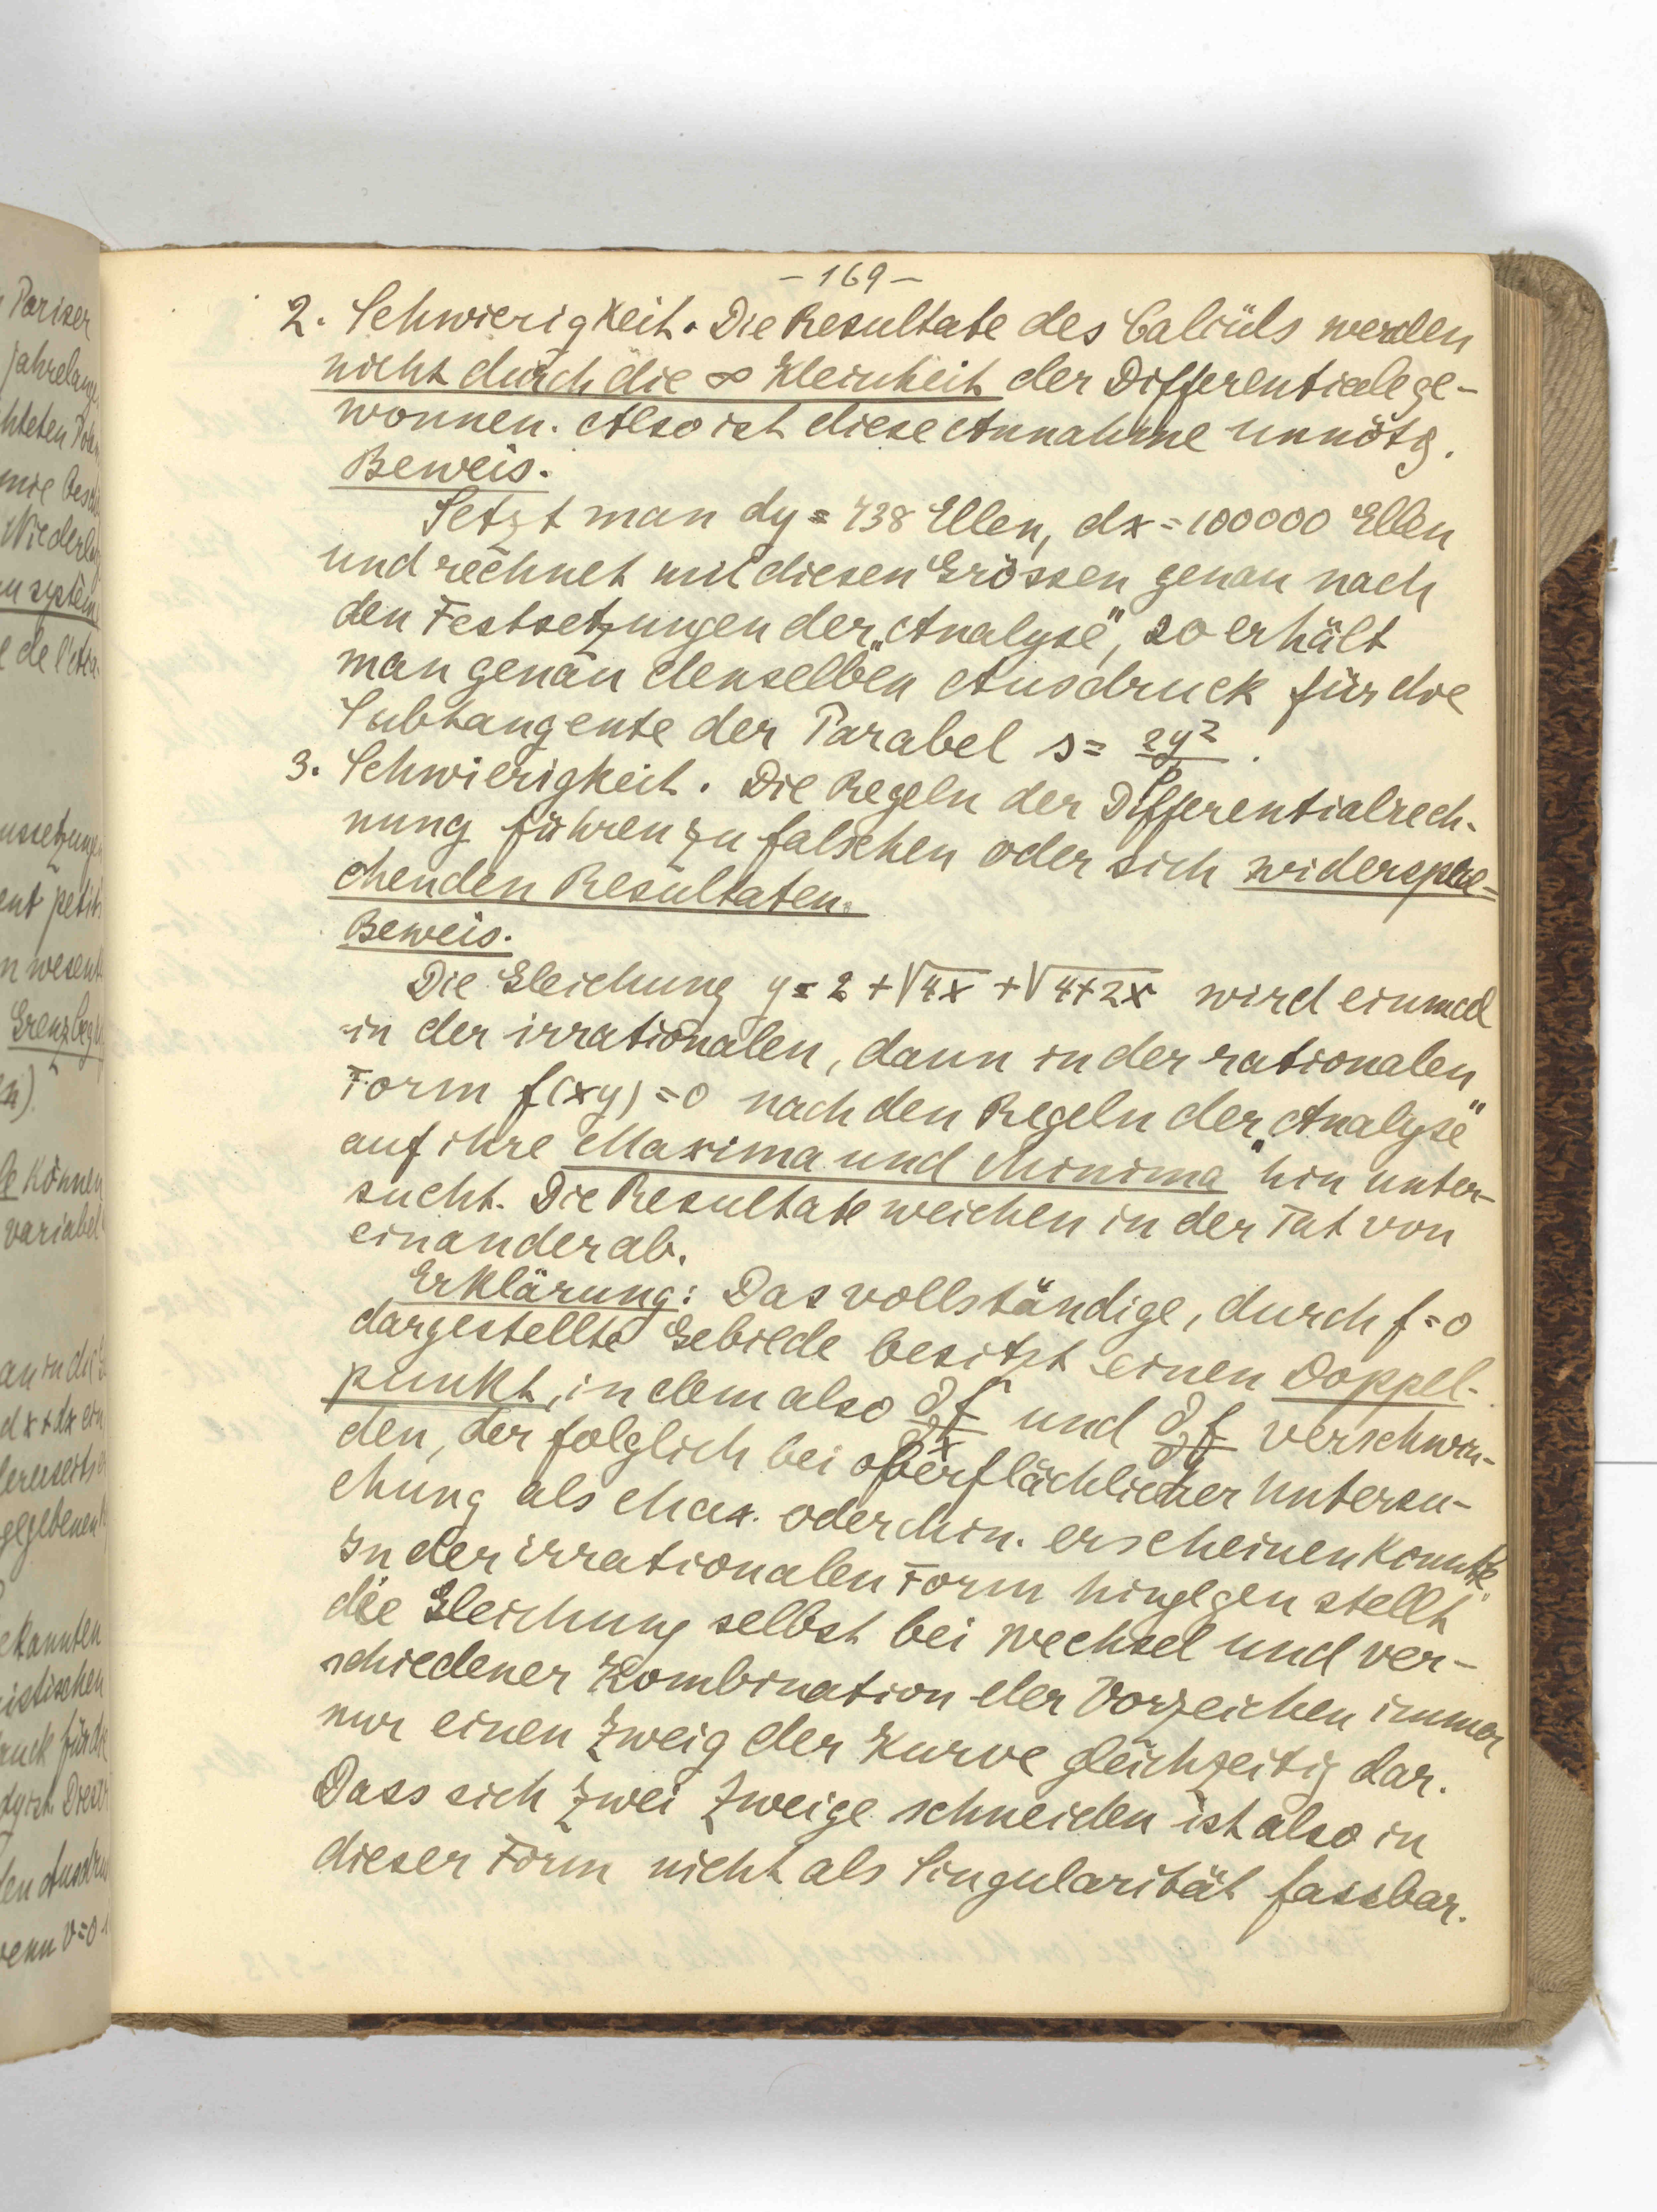 – 169 –
2. Schwierigkeit. Die Resultate des Calcüls werden
nicht durch die ∞ Kleinheit der Differentiale ge-
wonnen. Also ist diese Annahme unnötg.
Beweis.
Setzt man dy = 738 Ellen, dx = 100000 Ellen
und rechnet mit diesen Grössen genau nach
den Festsetzungen der „Analyse“, so erhält
man genau denselben Ausdruck für die
Subtangente der Parabel s = 2y²/p .
3. Schwierigkeit. Die Regeln der Differentialrech-
nung führen zu falschen oder sich widerspre-
chenden Resultaten.
Beweis.
Die Gleichung y = 2 + √4x + √4+2x wird einmal
in der irrationalen, dann in der rationalen
Form f(xy) = 0 nach den Regeln der „Analyse“
auf ihre Maxima und Minima hin unter-
sucht. Die Resultate weichen in der Tat von
einander ab.
Erklärung: Das vollständige, durch f = 0
dargestellte Gebilde besitzt einen Doppel-
punkt, in dem also ∂f/∂x und ∂f/∂y verschwin-
den, der folglich bei oberflächlicher Untersu-
chung als Max. oder Min. erscheinen konnte.
In der irrationalen Form hingegen stellt
die Gleichung selbst bei Wechsel und ver-
schiedener Kombination der Vorzeichen immer
nur einen Zweig der Kurve gleichzeitig dar.
Dass sich zwei Zweige schneiden ist also in
dieser Form nicht als Singularität fassbar.